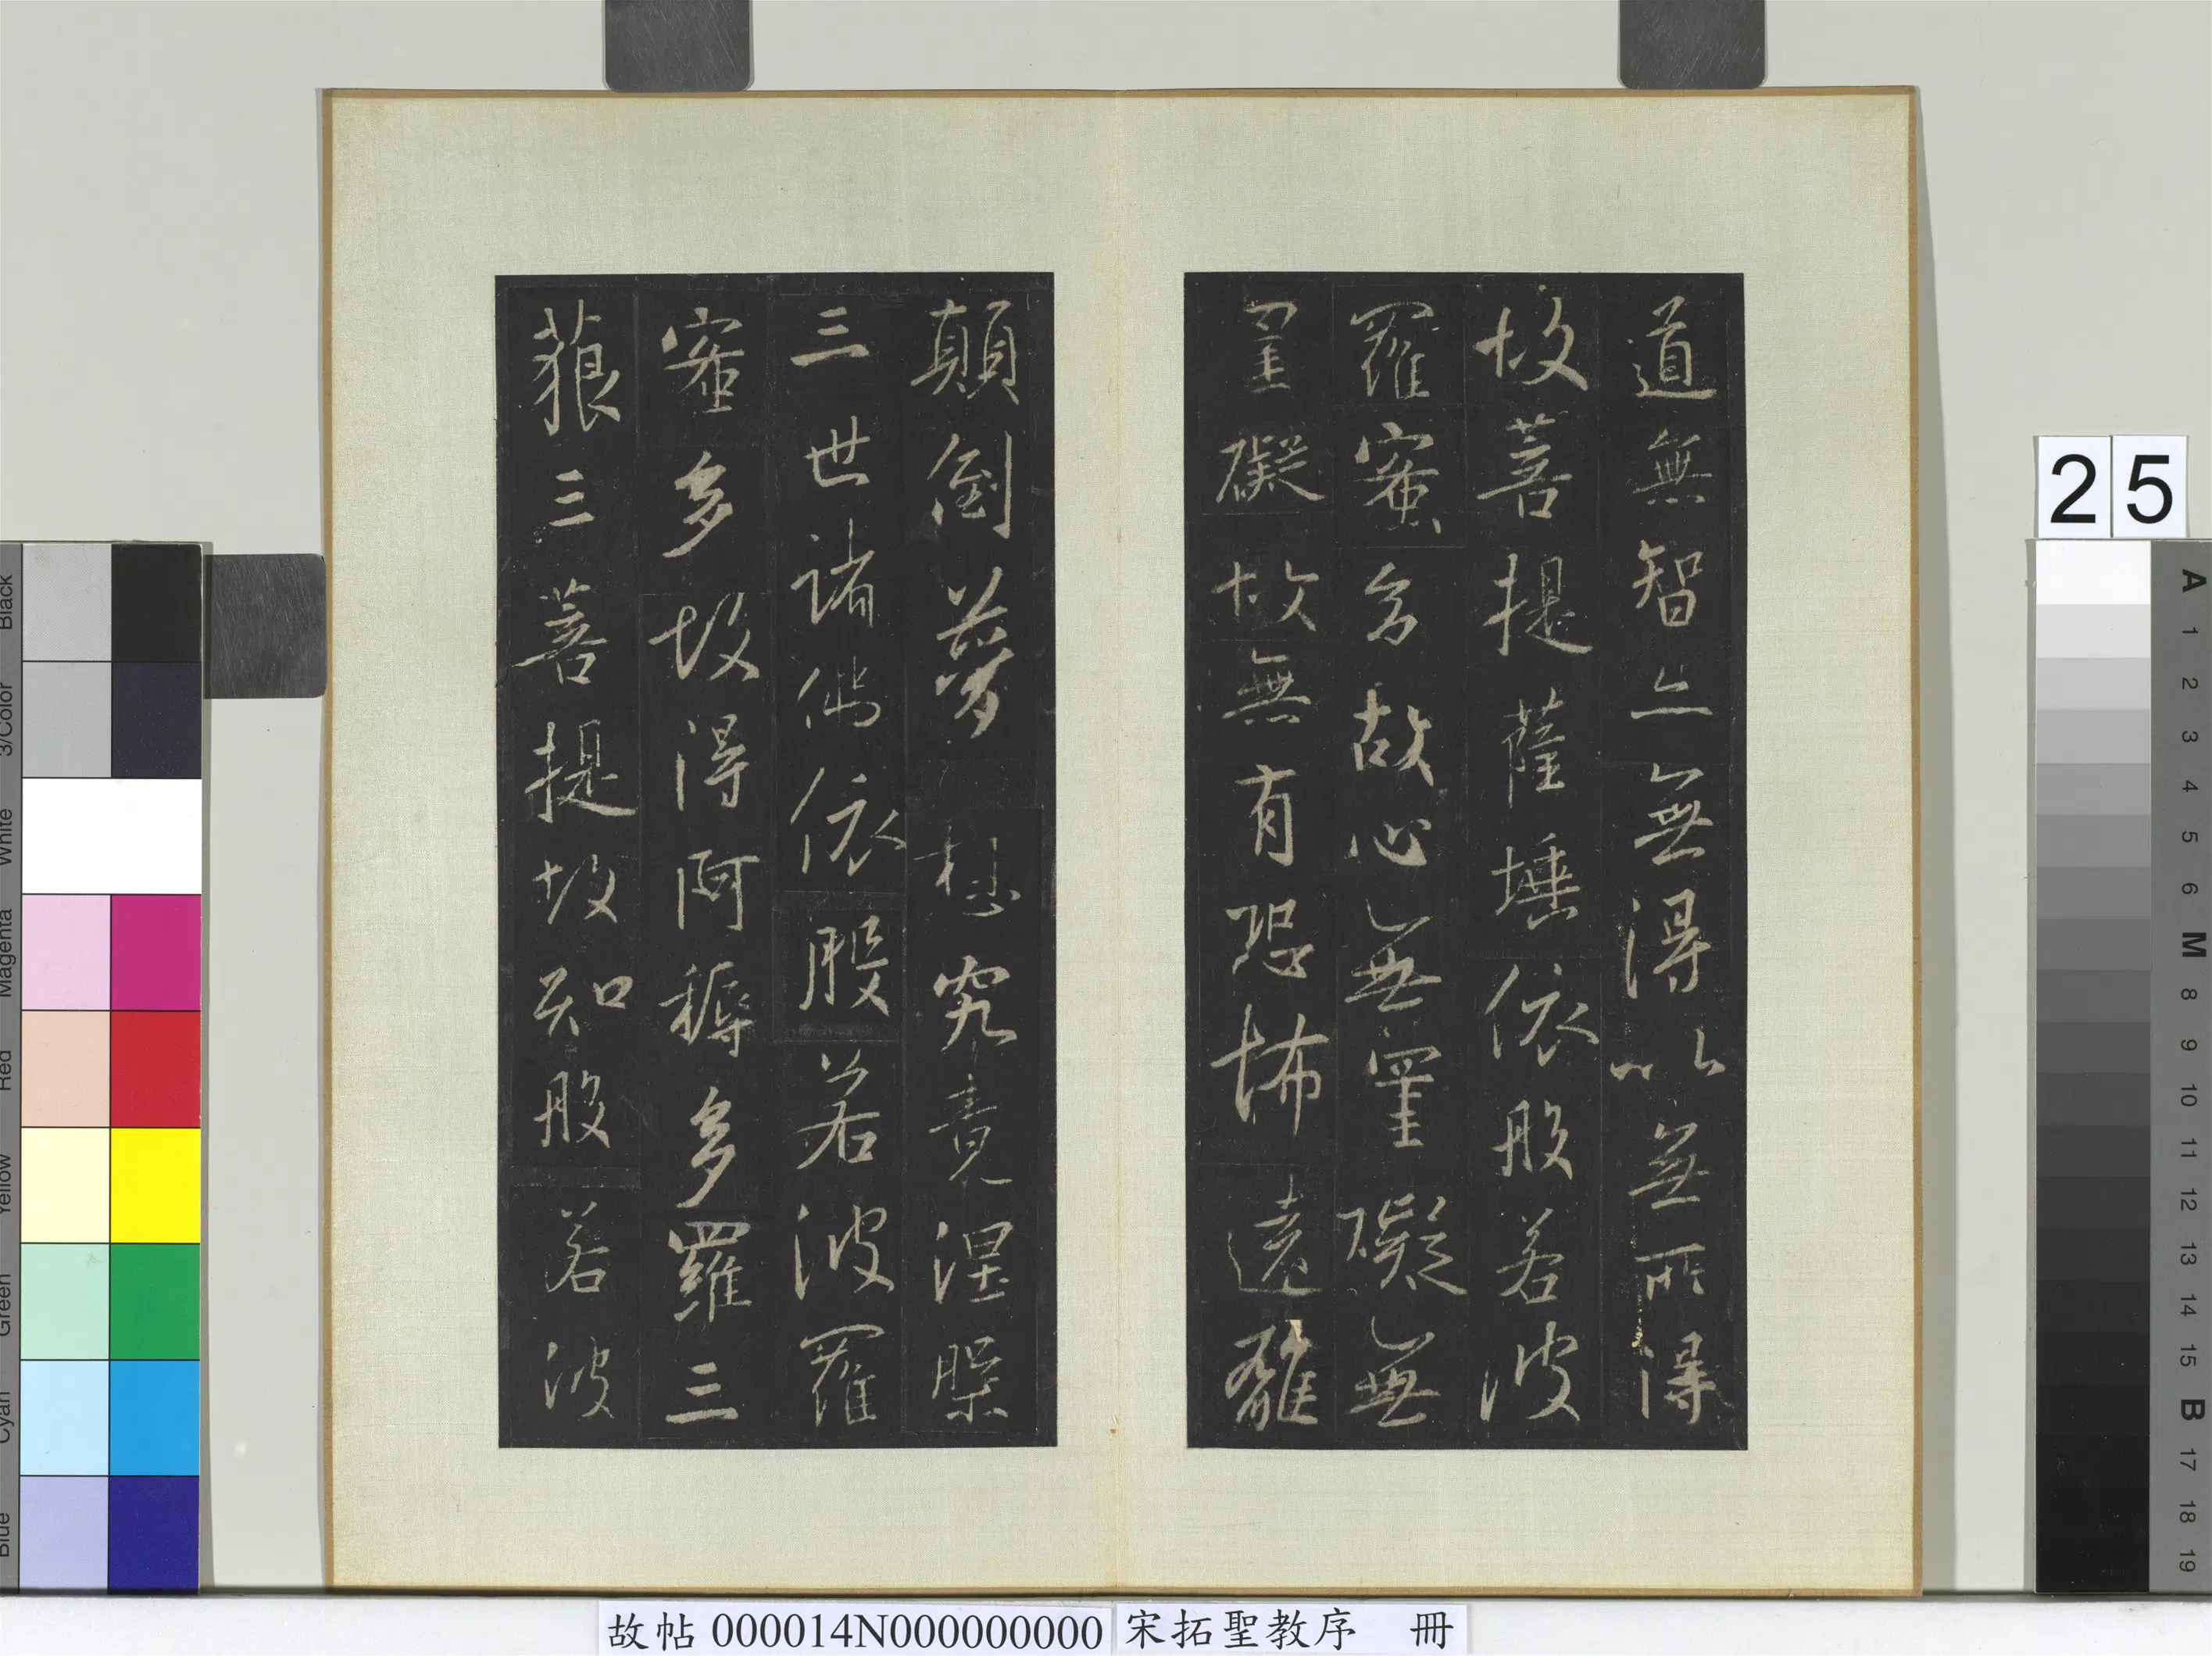 道無智亦無得以無所得
故菩提薩埵依般若波
羅蜜多故心無罣礙無
罣礙故無有恐怖遠離
顛倒夢想究竟涅槃
三世諸佛依般若波羅
蜜多故得阿耨多羅三
藐三菩提故知般若波
25
故帖 000014N000000000 宋拓聖教序 冊
Black
3/Color
White
Magenta
Red
Yellow
Green
Cyan
Blue
A
1
2
3
4
5
6
M
8
9
10
11
12
13
14
15
B
17
18
19